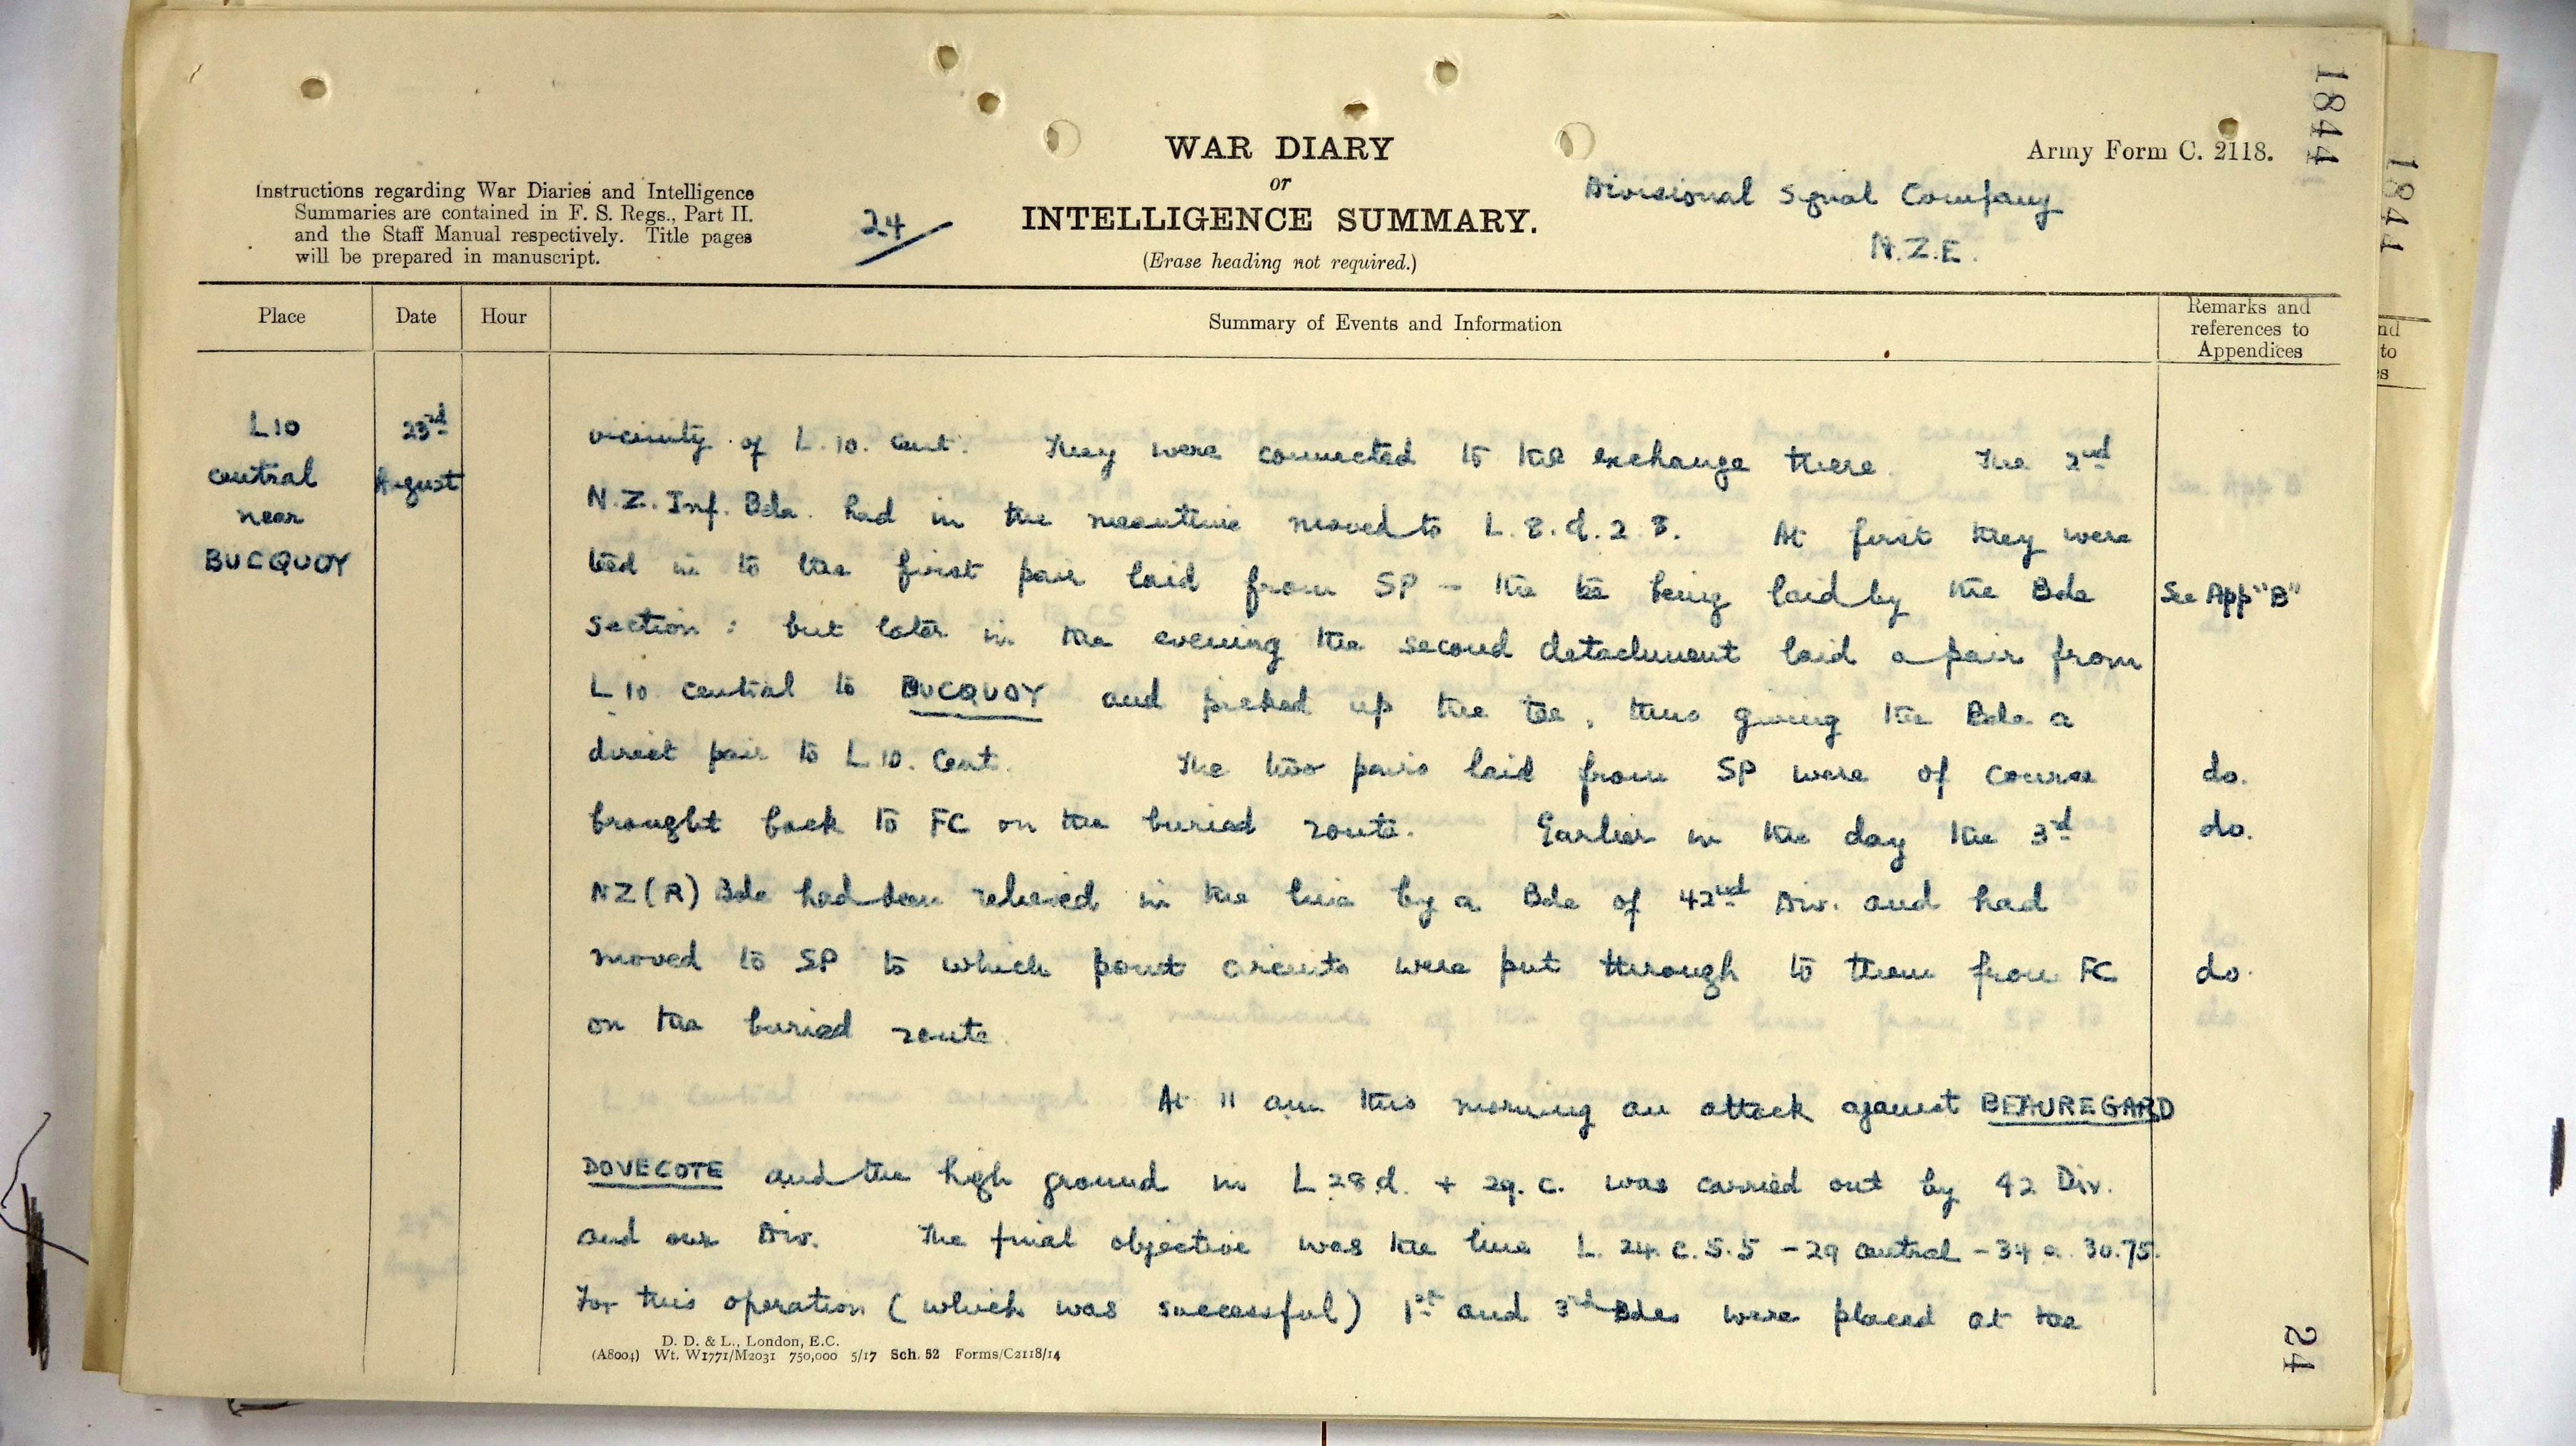 1844
1841
WAR DIARY
or
INTELLIGENCE SUMMARY.
(Erase heading not required.)
Army Form C. 2118.
Instructions regarding War Diaries and Intelligence
Summaries are contained in F. S. Regs., Part II.
and the Staff Manual respectively. Title pages
will be prepared in manuscript.
24/
Divisional Signal Company
N.Z.E.
Place Date Hour Summary of Events and Information Remarks and references to Appendices
nd
to
s
L10
central
near
BUCQUOY
23rd
August
vicinity of L.10. Cent. They were connected to the exchange there. The 2nd
N.Z. Inf. Bde. had in the meantime moved to L.8.d.2.3. At first they were
teed in to the first pair laid from SP – the tee being laid by the Bde See App "B"
section: but later in the evening the second detachment laid a pair from
L10 central to BUCQUOY and picked up the tee, thus giving the Bde a
direct pair to L.10. Cent. The two pairs laid from SP were of course do.
brought back to FC on the buried route. Earlier in the day the 3rd do.
NZ(R) Bde had been relieved in the line by a Bde of 42nd Div. and had
moved to SP to which point circuits were put through to them from FC do.
on the buried route.
At 11 am this morning an attack against BEAUREGARD
DOVECOTE and the high ground in L 28.d. + 29.c. was carried out by 42 Div.
and our Div. The final objective was the line L.24.c.5.5 – 29 central – 34 a. 30.75.
For this operation (which was successful) 1st and 3rd Bdes were placed at the
D. D. & L., London, E.C.
(A8004) Wt. W1771/M2031 750,000 5/17 Sch. 52 Forms/C2118/14
24